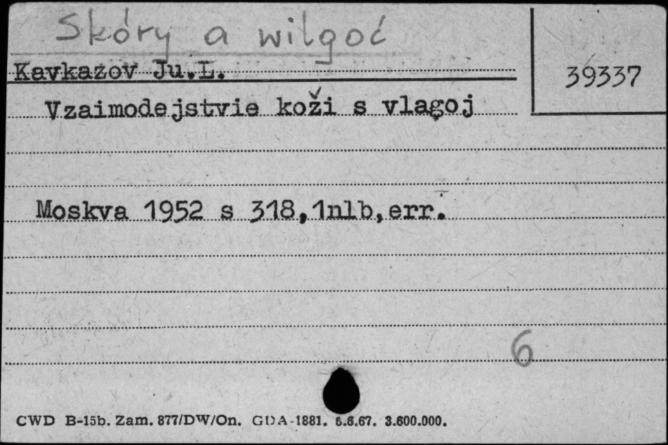 Skóry a wilgoć
39337
Kavkazov Ju.L.
Vzaimodejstvie koži s vlagoj
Moskva 1952 s 318,1nlb,err.
6
CWD B-15b. Zam. 877/DW/On. GDA-1881. 6.6.67. 3.600.000.